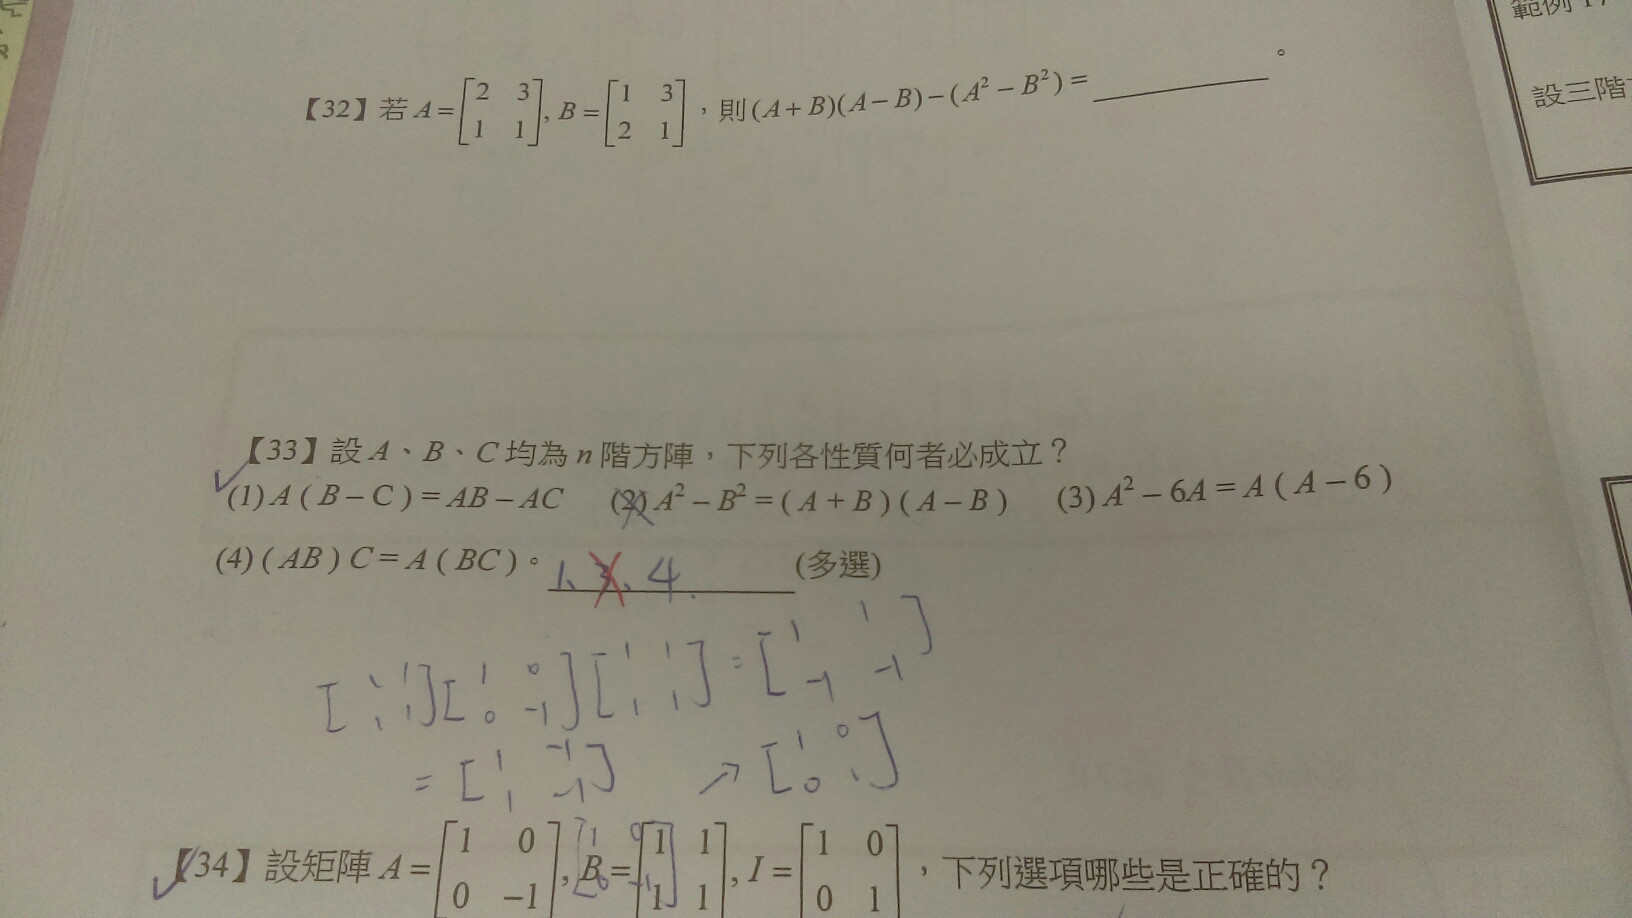 範例 17
設三階
【32】若 A = [2 3 1 1], B = [1 3 2 1] ,則 (A + B)(A − B) − (A² − B²) = ________ 。
【33】設 A、B、C 均為 n 階方陣,下列各性質何者必成立?
(1) A ( B − C ) = AB − AC (2) A² − B² = ( A + B ) ( A − B ) (3) A² − 6A = A ( A − 6 )
(4) ( AB ) C = A ( BC )。 1、3、4. (多選)
[1 1 1 1] [1 0 0 -1] [1 1 1 1] = [1 1 -1 -1]
= [1 -1 1 -1] → [1 0 0 1]
【34】設矩陣 A = [1 0 0 −1], B = [1 1 1 1], I = [1 0 0 1] ,下列選項哪些是正確的?
[1 0 0 -1]